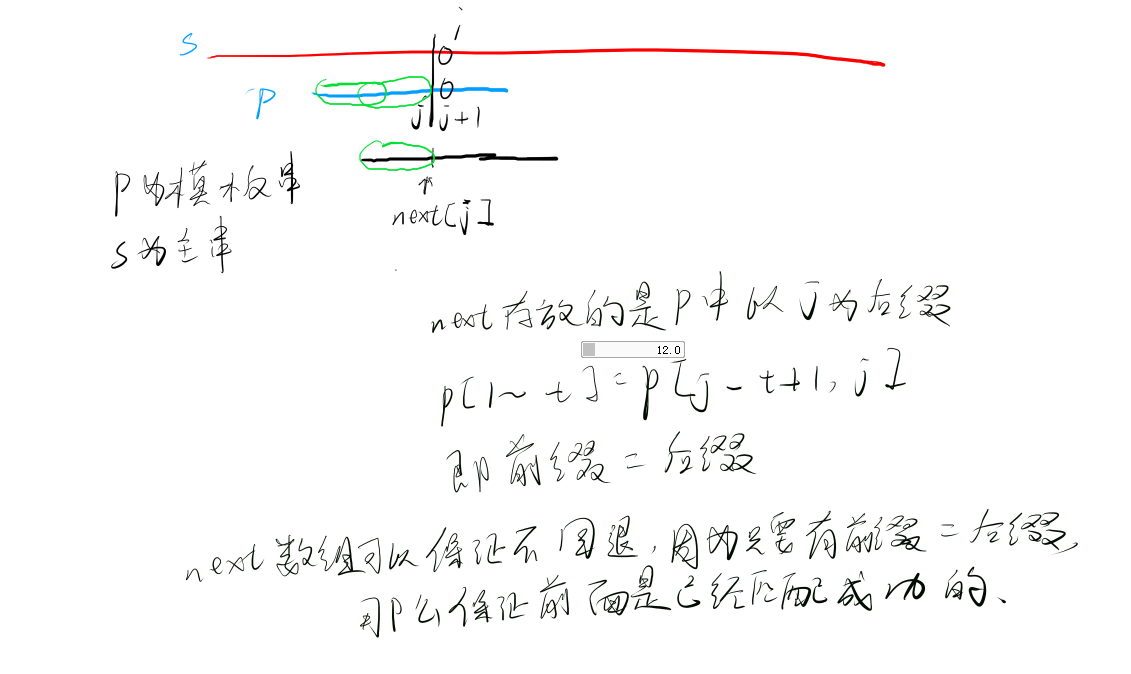 s
i
0
p
0
j j+1
next[j]
p为模板串
s为主串
next存放的是p中以j为后缀
12.0
p[1~t]=p[j-t+1,j]
即前缀=后缀
next数组可以保证不回退,因为只要有前缀=后缀,
那么保证前面是已经匹配成功的、